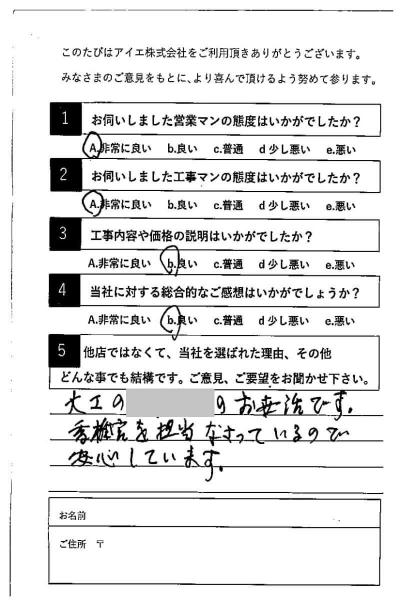 このたびはアイエ株式会社をご利用頂きありがとうございます。
みなさまのご意見をもとに、より喜んで頂けるよう努めて参ります。
1 お伺いしました営業マンの態度はいかがでしたか?
A.非常に良い b.良い c.普通 d少し悪い e.悪い
2 お伺いしました工事マンの態度はいかがでしたか?
A.非常に良い b.良い c.普通 d少し悪い e.悪い
3 工事内容や価格の説明はいかがでしたか?
A.非常に良い b.良い c.普通 d少し悪い e.悪い
4 当社に対する総合的なご感想はいかがでしょうか?
A.非常に良い b.良い c.普通 d少し悪い e.悪い
5 他店ではなくて、当社を選ばれた理由、その他
どんな事でも結構です。ご意見、ご要望をお聞かせ下さい。
大工の の お世話です。
香椎宮を担当なさっているので
安心しています。
お名前
ご住所 〒